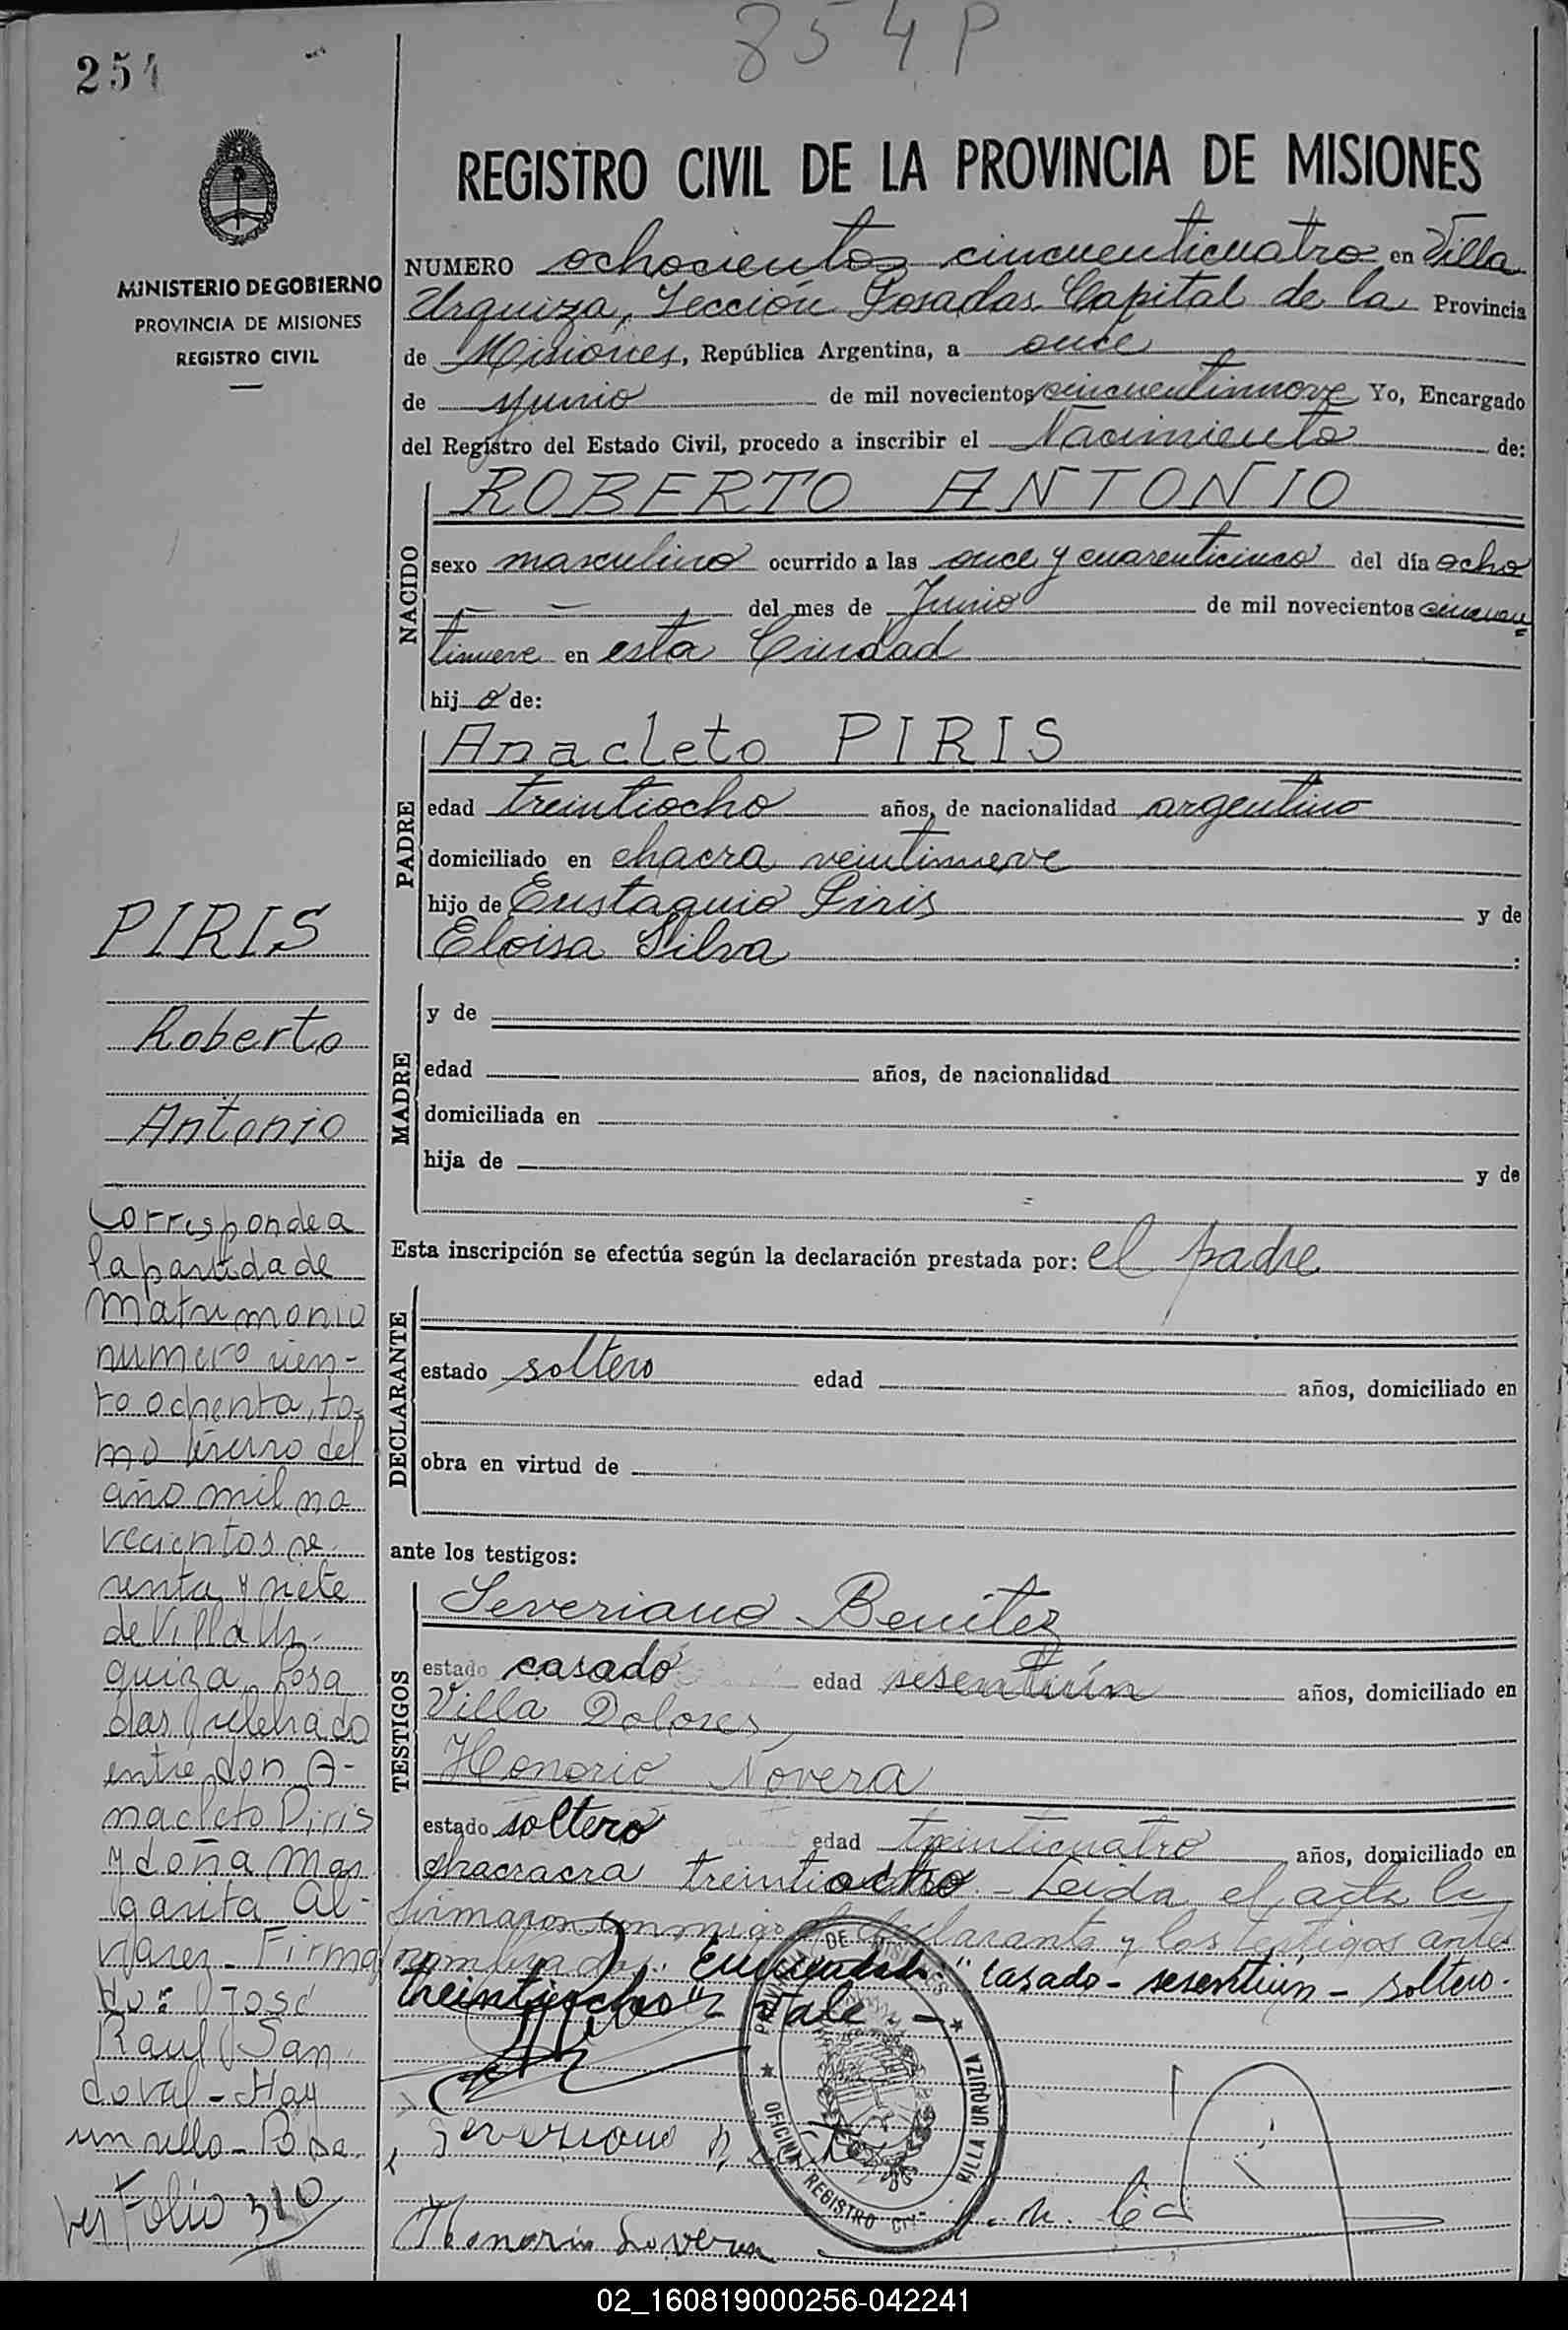 854P
254
MINISTERIO DE GOBIERNO
PROVINCIA DE MISIONES
REGISTRO CIVIL
REGISTRO CIVIL DE LA PROVINCIA DE MISIONES
NUMERO ochocientos cincuenticuatro en Villa
Urquiza, Sección Posadas Capital de la Provincia
de Misiones, República Argentina, a once
de junio de mil novecientos cincuentinueve Yo, Encargado
del Registro del Estado Civil, procedo a inscribir el Nacimiento de:
NACIDO
ROBERTO ANTONIO
sexo masculino ocurrido a las once y cuarenticinco del día ocho
del mes de Junio de mil novecientos cincuen=
tinueve en esta Ciudad
hijo de:
PADRE
Anacleto PIRIS
edad treintiocho años, de nacionalidad argentino
domiciliado en chacra veintinueve
hijo de Eustaquio Piris y de
Eloisa Silva :
MADRE
y de
edad años, de nacionalidad
domiciliada en
hija de y de
Esta inscripción se efectúa según la declaración prestada por: el padre
DECLARANTE
estado soltero edad años, domiciliado en
obra en virtud de
ante los testigos:
TESTIGOS
Severiano Benítez
estado casado edad sesentiún años, domiciliado en
Villa Dolores,
Honorio Novera
estado soltero edad treinticuatro años, domiciliado en
chacracra treintiocho. - Leida el acta la
firmaron conmigo el declarante y los testigos antes
nombrados. Enmendado: "casado - sesentiún - soltero -
treintiocho" Vale. -
PROVINCIA DE MISIONES
OFICINA REGISTRO
VILLA URQUIZA
Severiano
Honorio Lovera
PIRIS
Roberto
Antonio
Corresponde a
la partida de
matrimonio
numero cien-
to ochenta, to-
mo tercero del
año mil no
vecientos se
senta y siete
de Villa Ur-
quiza, Posa
das celebrado
entre don A-
nacleto Piris
y doña Mar
garita Al-
varez - Firma
do: José
Raul San
doval - Hay
un sello - Posa
Ver Folio 310
02_160819000256-042241